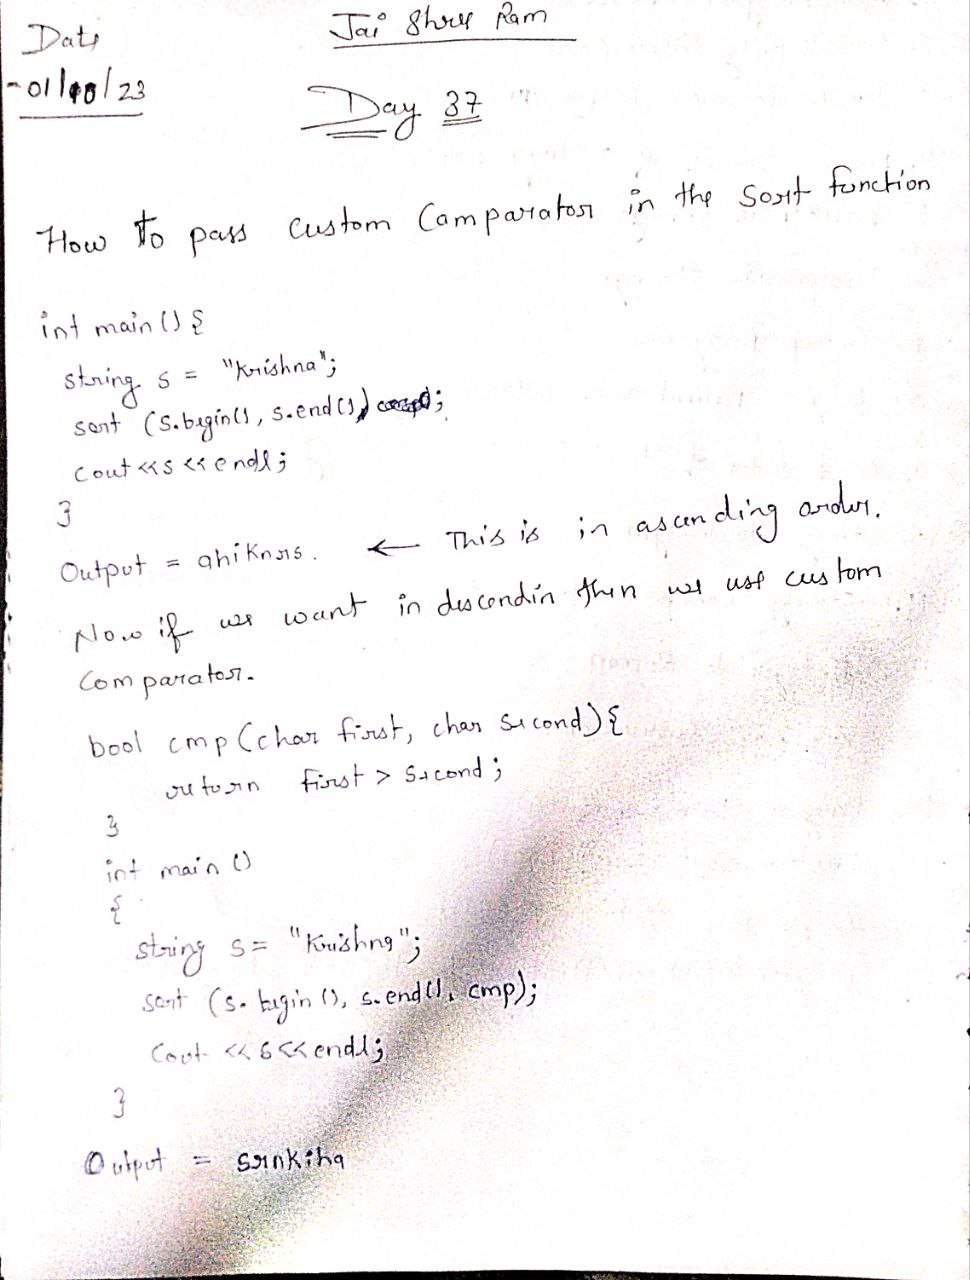 Jai Shree Ram
Date
- 01/10/23
Day 37
How to pass custom Camparator in the Sort function
int main() {
string s = "Krishna";
sort (s.begin(), s.end());
cout << s << endl;
}
Output = ahiknrs. ← This is in ascending order.
Now if we want in descendin then we use custom
Comparator.
bool cmp (char first, char second) {
return first > second;
}
int main ()
{
string s = "Krishna";
sort (s.begin(), s.end(), cmp);
Cout << s << endl;
}
Output = srnkiha